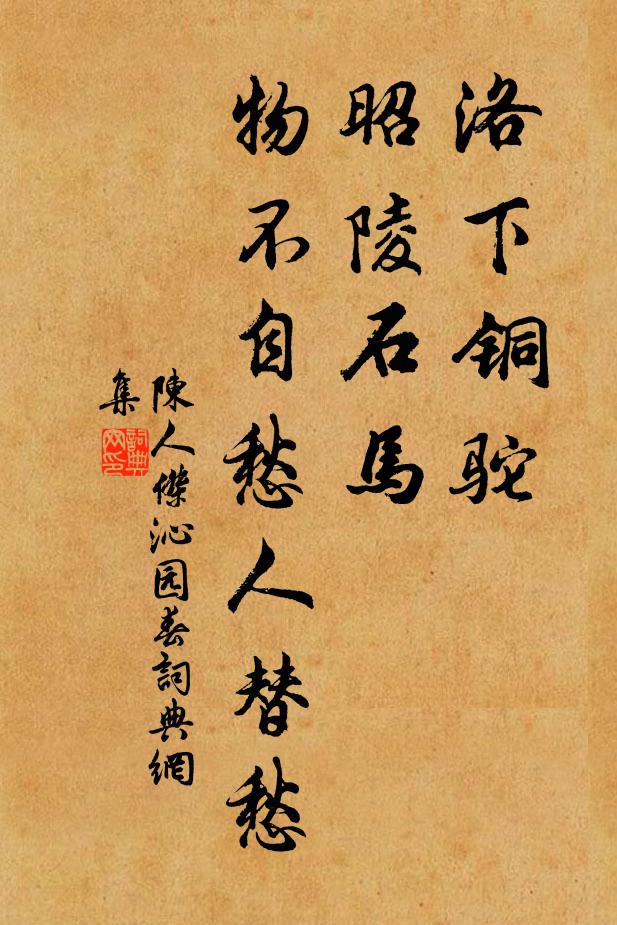 洛下铜驼
昭陵石馬
物不自愁人替愁
陳人傑沁园春詞典網
集
詞典
网印